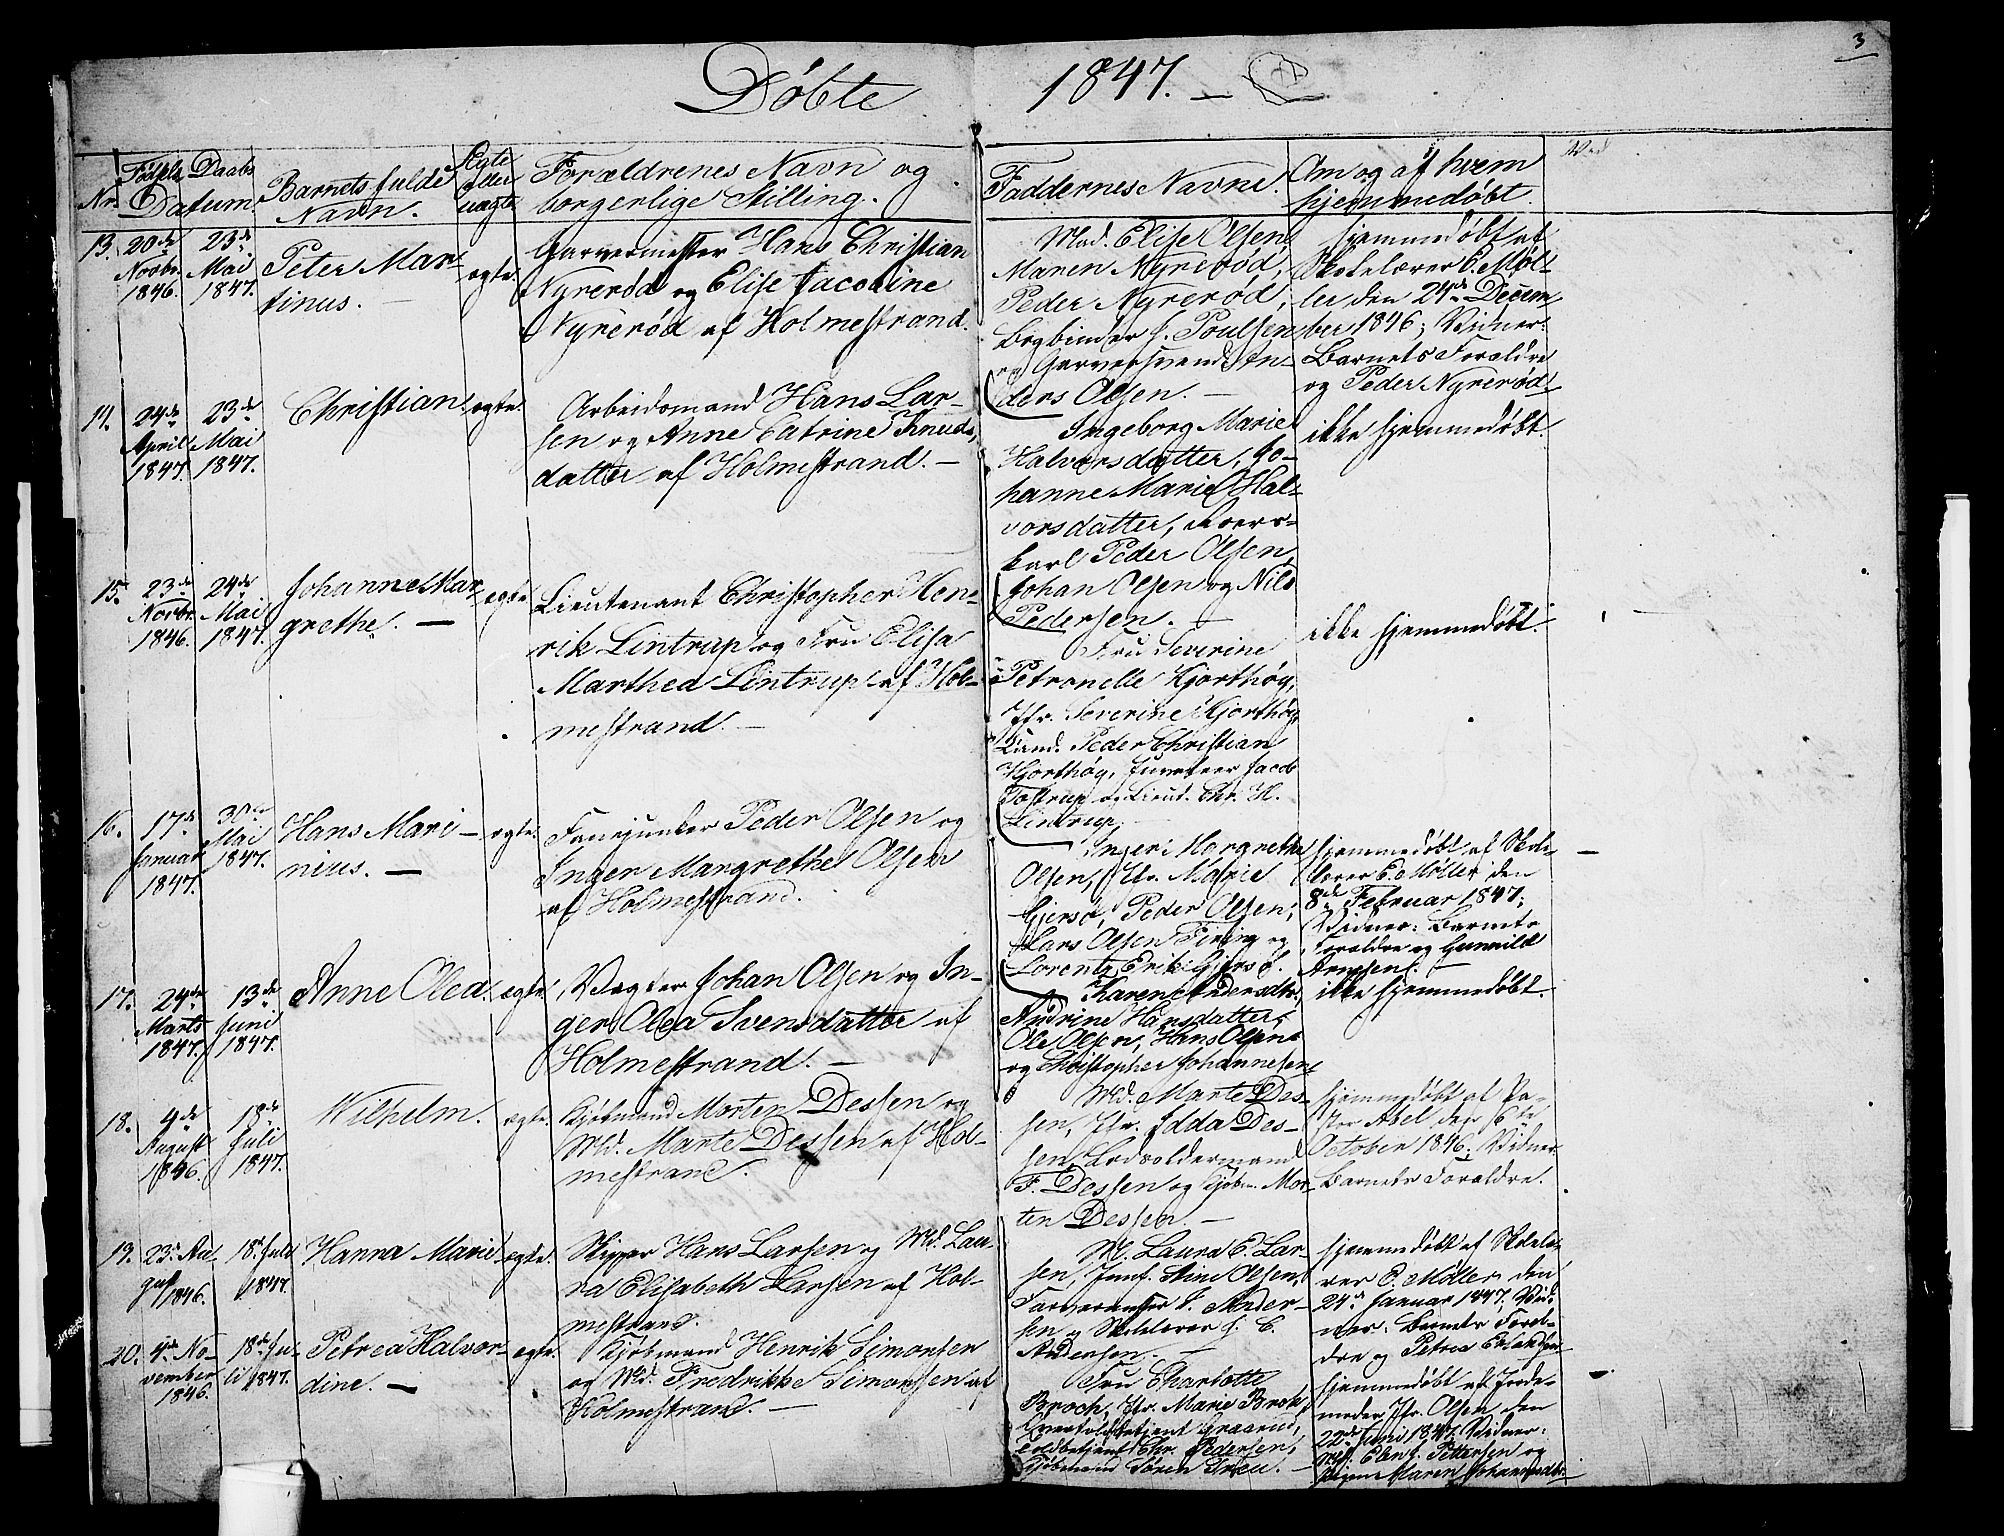 3
Døbte 1847. —
Nr.
Fødsels Daabs
Datum.
Barnets fulde
Navn.
Ægte
eller
uægte
Forældrenes Navn og
borgerlige Stilling.
Faddernes Navne.
Om og af hvem
hjemmedøbt.
13.
20de
Novbr.
1846.
23de
Mai
1847.
Peter Mar-
tinus. —
ægte.
Garvermester Hans Christian
Nyrerød og Elise Jacobine
Nyrerød af Holmestrand.
Mad. Elise Olsen,
Maren Nyrerød,
Peder Nyrerød,
Bogbinder J. Poulsen
og Garversvend An-
ders Olsen. —
Hjemmedøbt af
Skolelærer E. Møl-
ler den 24de Decem-
ber 1846; Vidner:
Barnets Forældre
og Peder Nyrerød.
14.
24de
April
1847.
23de
Mai
1847.
Christian.
ægte.
Arbeidsmand Hans Lar-
sen og Anne Catrine Knuds-
datter af Holmestrand. —
Ingeborg Marie
Halvorsdatter, Jo-
hanne Marie Hal-
vorsdatter,
karl Peder Olsen,
Johan Olsen og Nils
Pedersen. —
ikke hjemmedøbt.
15.
23de
Novbr.
1846.
24de
Mai
1847.
Johanne Mar-
grethe. —
ægte
Lieutenant Christopher Hen-
rik Lintrup og Fru Elisa
Marthea Lintrup af Hol-
mestrand. —
Fru Severine
Petronelle Hjorthøg,
Jfr. Severine Hjorthøg,
Lieud. Peder Christian
Hjorthøg, Jacob
Tostrup og Lieud. Chr. H.
Lintrup.
ikke hjemmedøbt.
16.
17de
Januar
1847.
30te
Mai
1847.
Hans Mari-
nius. —
ægte.
Fanejunker Peder Olsen og
Inger Margrethe Olsen
af Holmestrand.
Ingeri Margrethe
Olsen, Jfr. Marie
Gjersø, Peder Olsen,
Lars Olsen og
Lorentz Erik Gjersø.
Hjemmedøbt af Skole-
lærer E. Møller den
8de Februar 1847;
Vidner: Barnets
Forældre og Gunnild
Arnesen. —
17.
24de
Marts
1847.
13de
Juni
1847.
Anne Olea.
ægte.
Vægter Johan Olsen og In-
ger Olea Svensdatter af
Holmestrand. —
Karen Andersdtr.,
Andrine Hansdatter,
Ole Olsen, Hans Olsen
og Christopher Johannesen
ikke hjemmedøbt.
18.
4de
August
1846.
18de
Juli
1847.
Wilhelm.
ægte.
Kjøbmand Morten Dessen og
Md. Marte Dessen af Hol-
mestrand.
Md. Marte Des-
sen, Jfr. Idda Des-
sen, Lodsoldermand
F. Dessen og Kjøbm. Mor-
ten Dessen. —
Hjemmedøbt af Pa-
stor Abel den 6te
October 1846; Vidner
Barnets Forældre.
19.
23de Au-
gust
1846.
18de Juli
1847.
Hanna Marie
ægte.
Skipper Hans Larsen og Md. Lau-
ra Elisabeth Larsen af Hol-
mestrand.
M. Laura E. Lar-
sen, Jomf. Stine Olsen,
Farvermester L. Ander-
sen og Skolelærer J. C.
Andersen. —
Hjemmedøbt af Skolelæ-
rer E. Møller den
24de Januar 1847; Vid-
ner: Barnets Foræl-
dre og Petrea Erlandsen
20.
4de No-
vember
1846.
18de Ju-
li 1847.
Petrea Halvor-
dine. —
ægte.
Kjøbmand Henrik Simonsen
og Md. Fredrikke Simonsen af
Holmestrand. —
Fru Charlotte
Broch, Jfr. Marie Broch,
Chr. Pedersen,
Kjøbmand Søren Treu.
Hjemmedøbt af Jorde-
moder Jfr. Olsen den
22de Juni 1847; Vidner:
Md. Pettersen og
Maren Johannesdtr.